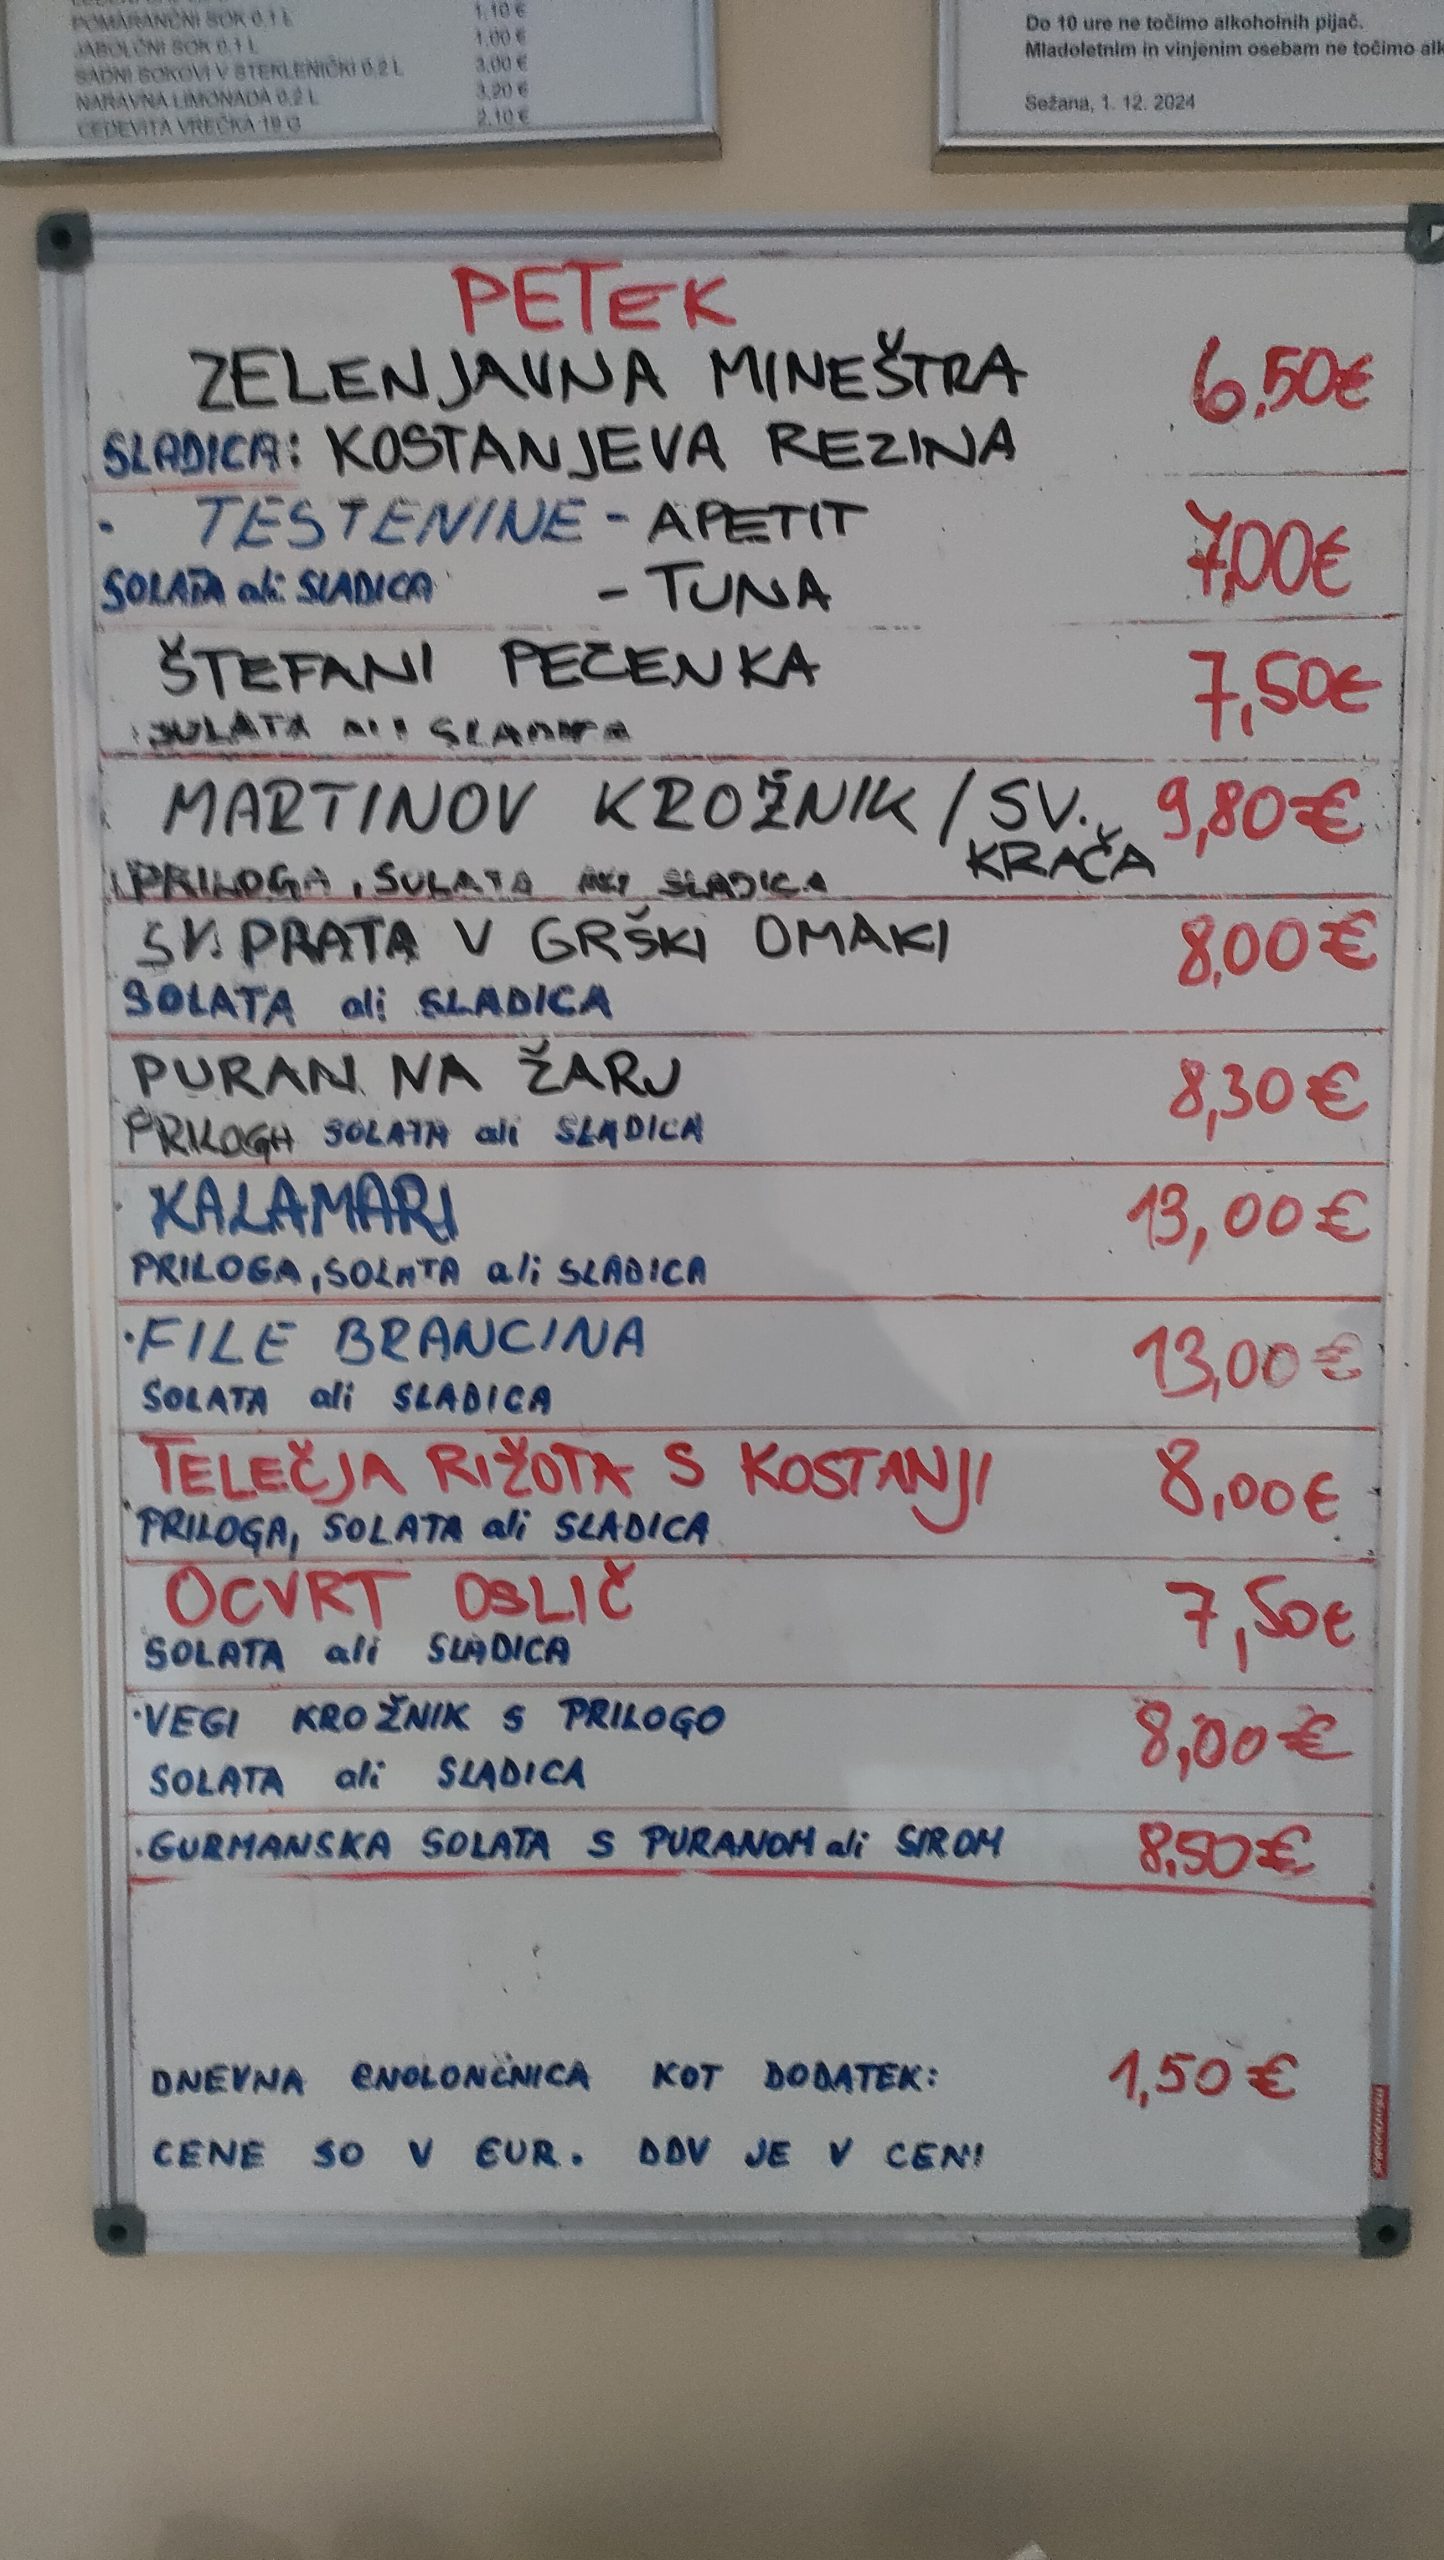 POMARANČNI SOK 0,1 L 1,10 €
JABOLČNI SOK 0,1 L 1,00 €
SADNI SOKOVI V STEKLENIČKI 0,2 L 3,00 €
NARAVNA LIMONADA 0,2 L 3,20 €
CEDEVITA VREČKA 19 G 2,10 €
Do 10 ure ne točimo alkoholnih pijač.
Mladoletnim in vinjenim osebam ne točimo alk
Sežana, 1. 12. 2024
PETEK
ZELENJAVNA MINEŠTRA 6,50€
SLADICA: KOSTANJEVA REZINA
· TESTENINE - APETIT 7,00€
SOLATA ali SLADICA - TUNA
ŠTEFANI PEČENKA 7,50€
SOLATA ali SLADICA
MARTINOV KROŽNIK / SV. 9,80€
KRAČA
PRILOGA, SOLATA ali SLADICA
SV. PRATA V GRŠKI OMAKI 8,00€
SOLATA ali SLADICA
PURAN NA ŽARU 8,30€
PRILOGA SOLATA ali SLADICA
· KALAMARI 13,00€
PRILOGA, SOLATA ali SLADICA
· FILE BRANCINA 13,00€
SOLATA ali SLADICA
TELEČJA RIŽOTA S KOSTANJI 8,00€
PRILOGA, SOLATA ali SLADICA
OCVRT OSLIČ 7,50€
SOLATA ali SLADICA
· VEGI KROŽNIK S PRILOGO 8,00€
SOLATA ali SLADICA
· GURMANSKA SOLATA S PURANOM ali SIROM 8,50€
DNEVNA ENOLONČNICA KOT DODATEK: 1,50€
CENE SO V EUR. DDV JE V CENI